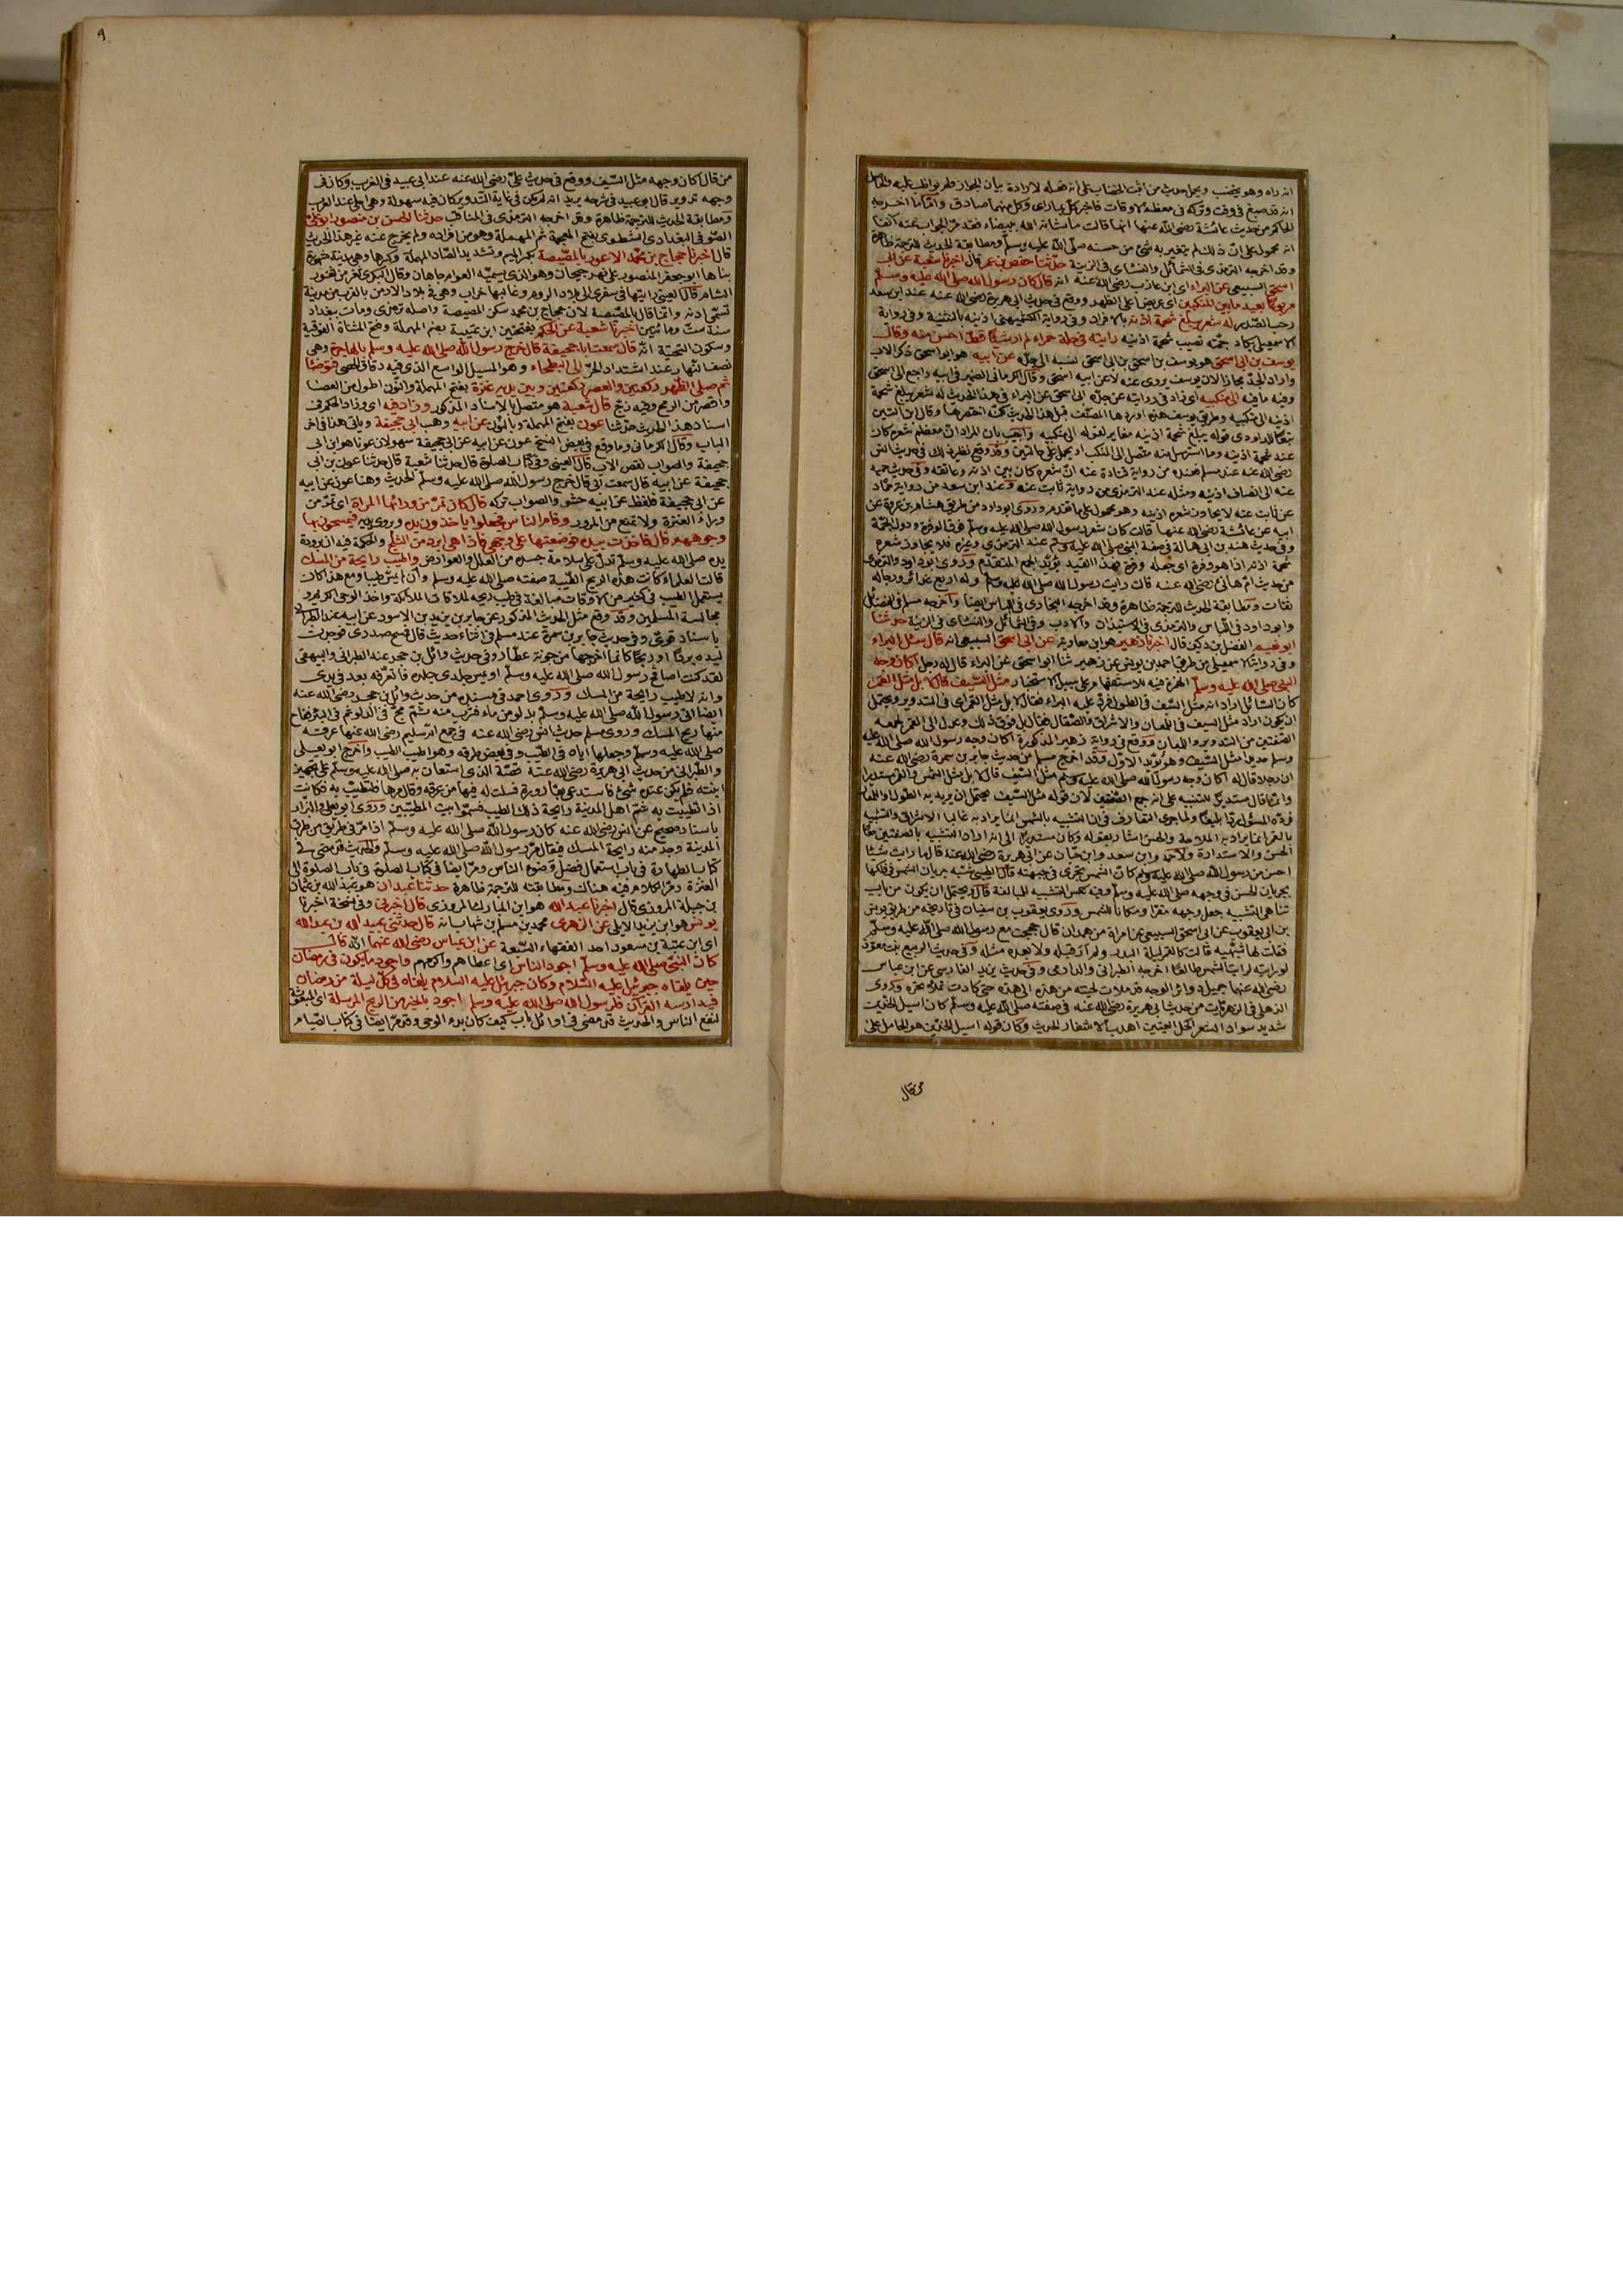 انه راه وهو يخضب ويحمل حديث من اثبت الخضاب على انه فعله لارادة بيان الجواز ولم يواظب عليه والحاصل
انه قد صبغ في وقت وتركه في معظم الاوقات فاخبر كل بما راى وكل منهما صادق واما ما اخرجه
الحاكم من حديث عائشة رضي الله عنها انها قالت ما شانه الله ببيضاء فقد مر الجواب عنه آنفا
انه محمول على ان ذلك لم يتغير به شئ من حسنه صلى الله عليه وسلم ومطابقة الحديث للترجمة ظاهرة
وقد اخرجه الترمذي في الشمائل والنسائي في الزينة حدثنا حفص بن عمر قال اخبرنا شعبة عن ابي
اسحق السبيعي عن البراء اي ابن عازب رضي الله عنه انه قال كان رسول الله صلى الله عليه وسلم
مربوعا بعيد ما بين المنكبين اي عريض اعلى الظهر ووقع في حديث ابي هريرة رضي الله عنه عند ابن سعد
رحب الصدر له شعر يبلغ شحمة اذنه بالافراد وفي رواية الكشميهني اذنيه بالتثنية وفي رواية
الاسمعيلي تكاد جمته تصيب شحمة اذنيه رايته في حلة حمراء لم ار شيئا قط احسن منه وقال
يوسف بن ابي اسحق هو يوسف بن اسحق بن ابي اسحق نسبه الى جده عن ابيه هو ابو اسحق ذكر الاب
واراد الجد مجازا لان يوسف يروي عنه لا عن ابيه اسحق وقال الكرماني الضمير في ابيه راجع الى اسحق
وفيه ما فيه الى منكبيه اي زاد في روايته عن جده ابي اسحق عن البراء في هذا الحديث له شعر يبلغ شحمة
اذنيه الى منكبيه وطريق يوسف هذه اوردها المصنف قبل هذا الحديث لكنه اختصرها وقال ابن التين
تبعا للداودي قوله يبلغ شحمة اذنيه مغاير لقوله الى منكبيه واجيب بان المراد ان معظم شعره كان
عند شحمة اذنيه وما استرسل منه متصل الى المنكب او يحمل على حالتين وقد وقع نظير ذلك في حديث انس
رضي الله عنه عند مسلم من رواية قتادة عنه ان شعره كان بين اذنيه وعاتقه وفي حديث حميد
عنه الى انصاف اذنيه ومثله عند الترمذي من رواية ثابت عنه وعند ابن سعد من رواية حماد
عن ثابت عنه لا يجاوز شعره اذنيه وهو محمول على ما تقدم وروى ابو داود من طريق هشام بن عروة عن
ابيه عن عائشة رضي الله عنها قالت كان شعر رسول الله صلى الله عليه وسلم فوق الوفرة ودون الجمة
وفي حديث هند بن ابي هالة في صفة النبي صلى الله عليه وسلم عند الترمذي وغيره فلا يجاوز شعره
شحمة اذنيه اذا هو وفره اي جعله وفرة فهذا القيد يؤيد الجمع المتقدم وروى ابو داود والترمذي
من حديث ام هانئ رضي الله عنها قالت رايت رسول الله صلى الله عليه وسلم وله اربع غدائر ورجاله
ثقات ومطابقة الحديث للترجمة ظاهرة وقد اخرجه البخاري في اللباس ايضا واخرجه مسلم في الفضائل
وابو داود في اللباس والترمذي في الاستيذان والادب وفي الشمائل والنسائي في الزينة حدثنا
ابو نعيم الفضل بن دكين قال اخبرنا زهير هو ابن معاوية عن ابي اسحق السبيعي انه قال سئل البراء
وفي رواية الاسمعيلي من طريق احمد بن يونس عن زهير ثنا ابو اسحق عن البراء قال له رجل اكان وجه
النبي صلى الله عليه وسلم الهمزة فيه للاستفهام على سبيل الاستخبار مثل السيف قال لا بل مثل القمر
كان السائل اراد انه مثل السيف في الطول فرد عليه البراء فقال لا بل مثل القمر اي في التدوير ويحتمل
ان يكون اراد مثل السيف في اللمعان والاشراق والصقال فقال بل فوق ذلك وعدل الى القمر لجمعه
الصفتين من التدوير واللمعان ووقع في رواية زهير المذكورة اكان وجه رسول الله صلى الله عليه
وسلم حديدا مثل السيف وهو يؤيد الاول وقد اخرج مسلم من حديث جابر بن سمرة رضي الله عنه
ان رجلا قال له اكان وجه رسول الله صلى الله عليه وسلم مثل السيف قال لا بل مثل الشمس والقمر مستديرا
وانما قال مستديرا للتنبيه على انه جمع الصفتين لان قوله مثل السيف يحتمل ان يريد به الطول او اللمعان
فرده المسئول ردا بليغا ولما جرى التعارف في ان التشبيه بالشمس انما يراد به غالبا الاشراق والتشبيه
بالقمر انما يراد به الملاحة والحسن اشار بقوله وكان مستديرا الى انه اراد التشبيه بالصفتين معا
الحسن والاستدارة ولاحمد وابن سعد وابن حبان عن ابي هريرة رضي الله عنه قال ما رايت شيئا
احسن من رسول الله صلى الله عليه وسلم كان الشمس تجري في جبهته قال الطيبي شبه جريان الشمس في فلكها
بجريان الحسن في وجهه صلى الله عليه وسلم وفيه عكس التشبيه للمبالغة قال ويحتمل ان يكون من باب
تناهي التشبيه جعل وجهه مقرا ومكانا للشمس وروى يعقوب بن سفيان في تاريخه من طريق يونس
بن ابي يعقوب عن ابي اسحق السبيعي عن امراة من همدان قال حججت مع رسول الله صلى الله عليه وسلم
فقلت لها شبهيه قالت كالقمر ليلة البدر ولم ار قبله ولا بعده مثله وفي حديث الربيع بنت معوذ
لو رايته لرايت الشمس طالعة اخرجه الطبراني والدارمي وفي حديث يزيد الفارسي عن ابن عباس
رضي الله عنهما جميل دوائر الوجه قد ملات لحيته من هذه الى هذه حتى كادت تملا نحره وروى
الذهلي في الزهريات من حديث ابي هريرة رضي الله عنه في صفته صلى الله عليه وسلم كان اسيل الخدين
شديد سواد الشعر اكحل العينين اهدب الاشفار الحديث وكان قوله اسيل الخدين هو الحامل على
من قال
٩
من قال اكان وجهه مثل السيف ووقع في حديث علي رضي الله عنه عند ابي عبيد في الغريب وكان في
وجهه تدوير قال ابو عبيد في شرحه يريد انه لم يكن في غاية التدوير بل كان فيه سهولة وهي احلى عند العرب
ومطابقة الحديث للترجمة ظاهرة وقد اخرجه الترمذي في المناقب حدثنا الحسن بن منصور ابو علي
الصوفي البغدادي الشطوي بفتح المعجمة ثم المهملة وهو من افراده ولم يخرج عنه غير هذا الحديث
قال اخبرنا حجاج بن محمد الاعور بالمصيصة بكسر الميم وتشديد الصاد المهملة وكسرها وهي مدينة مشهورة
بناها ابو جعفر المنصور على نهر جيحان وهو الذي يسميه العوام جاهان وقال البكري ثغر من ثغور
الشام قال العيني رايتها في سفري الى بلاد الروم وغالبها خراب وهي في بلاد الارمن بالقرب من مدينة
تسمى ادنه وانما قال المصيصة لان حجاج بن محمد سكن المصيصة واصله ترمذي ومات ببغداد
سنة ست ومائتين اخبرنا شعبة عن الحكم بفتحتين ابن عتيبة بضم المهملة وفتح المثناة الفوقية
وسكون التحتية انه قال سمعت ابا جحيفة قال خرج رسول الله صلى الله عليه وسلم بالهاجرة وهي
نصف النهار عند اشتداد الحر الى البطحاء وهو المسيل الواسع الذي فيه دقاق الحصى فتوضأ
ثم صلى الظهر ركعتين والعصر ركعتين وبين يديه عنزة بفتح المهملة والنون اطول من العصا
واقصر من الرمح وفيه زج قال شعبة هو متصل بالاسناد المذكور وزاد فيه اي وزاد الحكم في
اسناد هذا الحديث حدثنا عون بفتح المهملة وبالنون عن ابيه وهب ابي جحيفة وياتي هذا في آخر
الباب وقال الكرماني وما وقع في بعض النسخ عون عن ابيه عن ابي جحيفة سهو لان عونا هو ابن ابي
جحيفة والصواب نقص الاب قال العيني وفي كتاب الصلوة قال حدثنا شعبة قال حدثنا عون بن ابي
جحيفة عن ابيه قال سمعت ابي قال خرج رسول الله صلى الله عليه وسلم الحديث وهنا عون عن ابيه
عن ابي جحيفة فلفظ عن ابيه حشو والصواب تركه قال كان تمر من ورائها المراة اي تمر من
وراء العنزة ولا تمنع من المرور وقام الناس فجعلوا ياخذون يده ويروى يديه فيمسحون بها
وجوههم قال فاخذت بيده فوضعتها على وجهي فاذا هي ابرد من الثلج والحكمة فيه ان برودة
يده صلى الله عليه وسلم تدل على سلامة جسده من العلل والعوارض واطيب رايحة من المسك
قالت العلماء كانت هذه الريح الطيبة صفته صلى الله عليه وسلم وان لم يمس طيبا ومع هذا كان
يستعمل الطيب في كثير من الاوقات مبالغة في طيب ريحه لملاقات الملائكة واخذ الوحي الكريم و
مجالسة المسلمين وقد وقع مثل الحديث المذكور عن جابر بن يزيد بن الاسود عن ابيه عند الطبراني
باسناد قوي وفي حديث جابر بن سمرة عند مسلم في اثناء حديث قال فمسح صدري فوجدت
ليده بردا او ريحا كانما اخرجها من جونة عطار وفي حديث وائل بن حجر عند الطبراني والبيهقي
لقد كنت اصافح رسول الله صلى الله عليه وسلم او يمس جلدي جلده فاتعرفه بعد في يدي
وانه لاطيب رايحة من المسك وروى احمد في مسنده من حديث وائل بن حجر رضي الله عنه
ايضا اتي رسول الله صلى الله عليه وسلم بدلو من ماء فشرب منه ثم مج في الدلو ثم في البئر ففاح
منها ريح المسك وروى مسلم حديث انس رضي الله عنه في جمع ام سليم رضي الله عنها عرقه
صلى الله عليه وسلم وجعلها اياه في الطيب وفي بعض طرقه وهو اطيب الطيب واخرج ابو يعلى
والطبراني من حديث ابي هريرة رضي الله عنه قصة الذي استعان به صلى الله عليه وسلم على تجهيز
ابنته فلم يكن عنده شئ فاستدعى بقارورة فسلت له فيها من عرقه وقال مرها فلتطيب به فكانت
اذا تطيبت به شم اهل المدينة رايحة ذلك الطيب فسموا بيت المطيبين وروى ابو يعلى والبزار
باسناد صحيح عن انس رضي الله عنه كان رسول الله صلى الله عليه وسلم اذا مر في طريق من طرق
المدينة وجد منه رايحة المسك فيقال مر رسول الله صلى الله عليه وسلم والحديث قد مضى في
كتاب الطهارة في باب استعمال فضل وضوء الناس ومر ايضا في كتاب الصلوة في باب الصلوة الى
العنزة ومر الكلام فيه هناك ومطابقته للترجمة ظاهرة حدثنا عبدان هو عبد الله بن عثمان
بن جبلة المروزي قال اخبرنا عبد الله هو ابن المبارك المروزي قال اخبرني وفي نسخة اخبرنا
يونس هو ابن يزيد الايلي عن الزهري محمد بن مسلم بن شهاب انه قال حدثني عبيد الله بن عبد الله
اي ابن عتبة بن مسعود احد الفقهاء السبعة عن ابن عباس رضي الله عنهما انه قال
كان النبي صلى الله عليه وسلم اجود الناس اي اعطاهم واكرمهم واجود ما يكون في رمضان
حين يلقاه جبرئيل عليه السلام وكان جبرئيل عليه السلام يلقاه في كل ليلة من رمضان
فيدارسه القرآن فلرسول الله صلى الله عليه وسلم اجود بالخير من الريح المرسلة اي المبعوثة
لنفع الناس والحديث قد مضى في اوائل باب كيف كان بدء الوحي وقد مر ايضا في كتاب الصيام